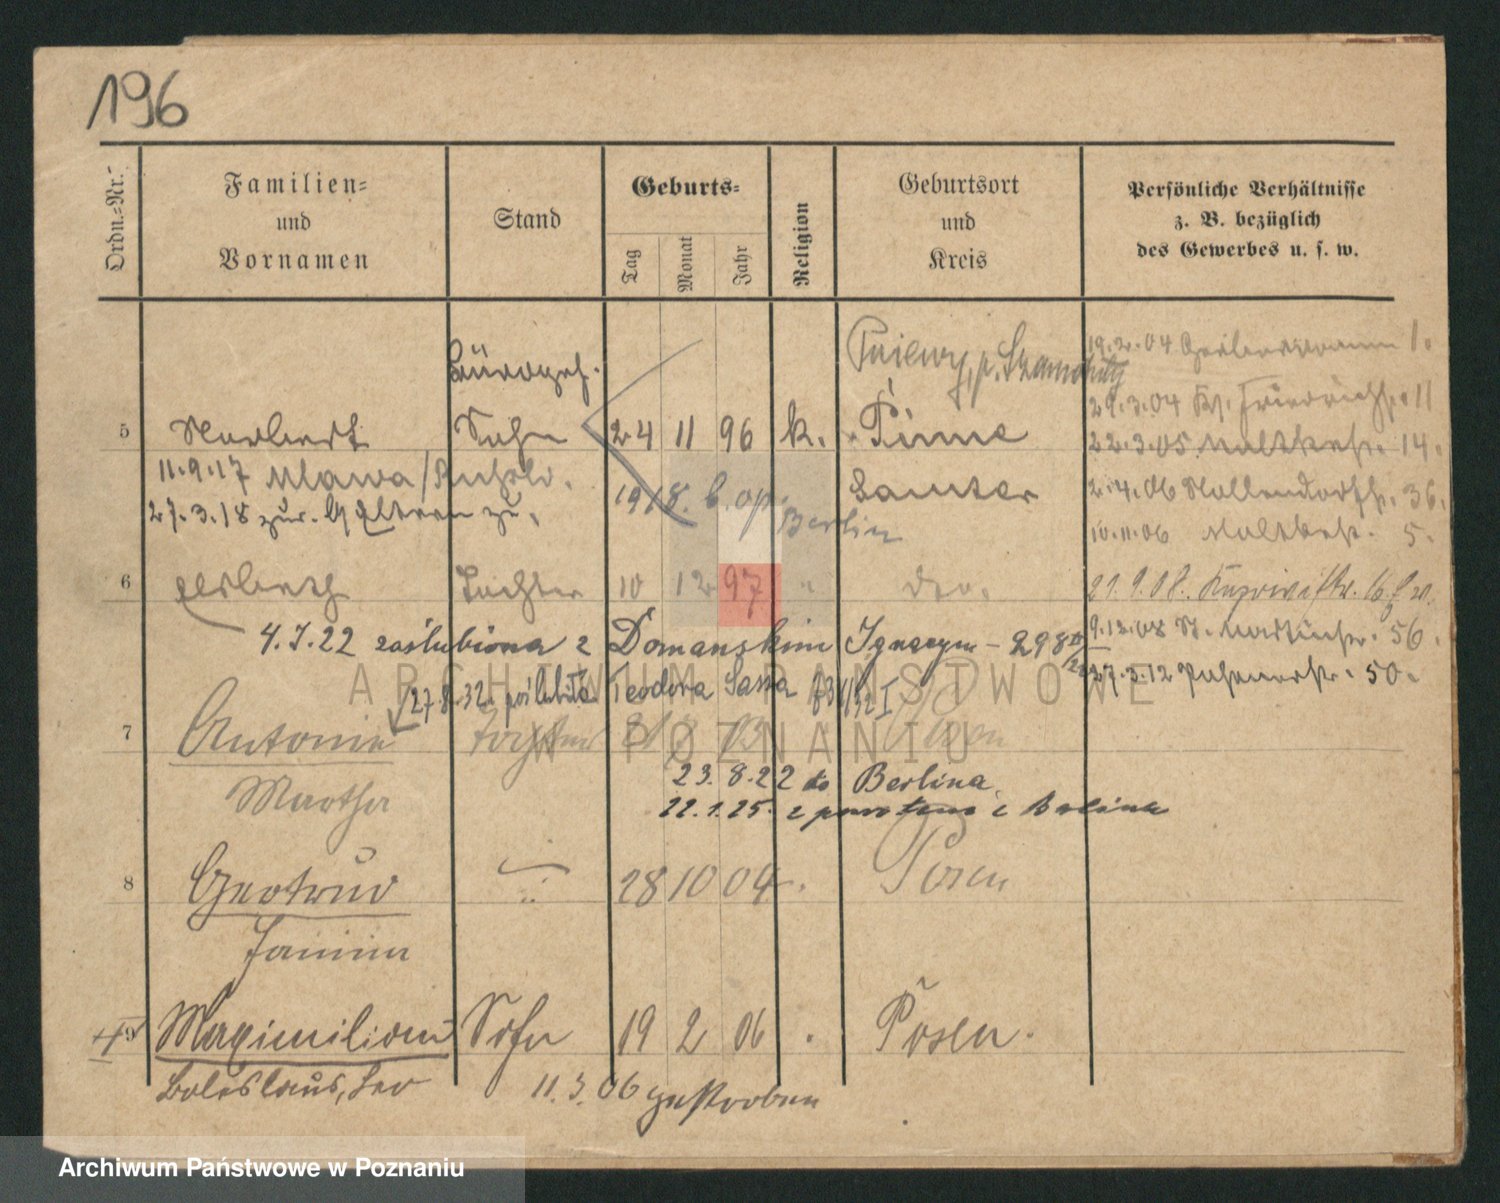 196
Ordn.-Nr.
Familien-
und
Vornamen
Stand
Geburts-
Tag
Monat
Jahr
Religion
Geburtsort
und
Kreis
Persönliche Verhältnisse
z. B. bezüglich
des Gewerbes u. s. w.
Pniewy, p. Szamotuły
19.2.04 1.
29.3.04 11
5 Norbert Sohn 24 11 96 k. Pinne
22.3.05 Moltkestr. 14.
11.9.17 Mlawa/
1918 Samter
2.4.06 Hollendorfstr. 36.
27.3.18 zur.
Berlin
10.11.06 Moltkestr. 5.
6 Tochter 10 12 97 " dto.
21.9.08.
4.7.22 zaślubiona z Domanskim Ignacym - 298
9.12.08 St. Martinstr. 56.
27.8.32 poślubiła Teodora Sassa
27.3.12 50.
ARCHIWUM PAŃSTWOWE
W POZNANIU
7 Antonie Tochter
Martha
23.8.22 do Berlina
22.1.25. z powrotem z Berlina
8 Gertrud 28 10 04 Posen
Janina
9 Maximilian Sohn 19 2 06 Posen.
Boleslaus, Leo 11.3.06 gestorben
Archiwum Państwowe w Poznaniu